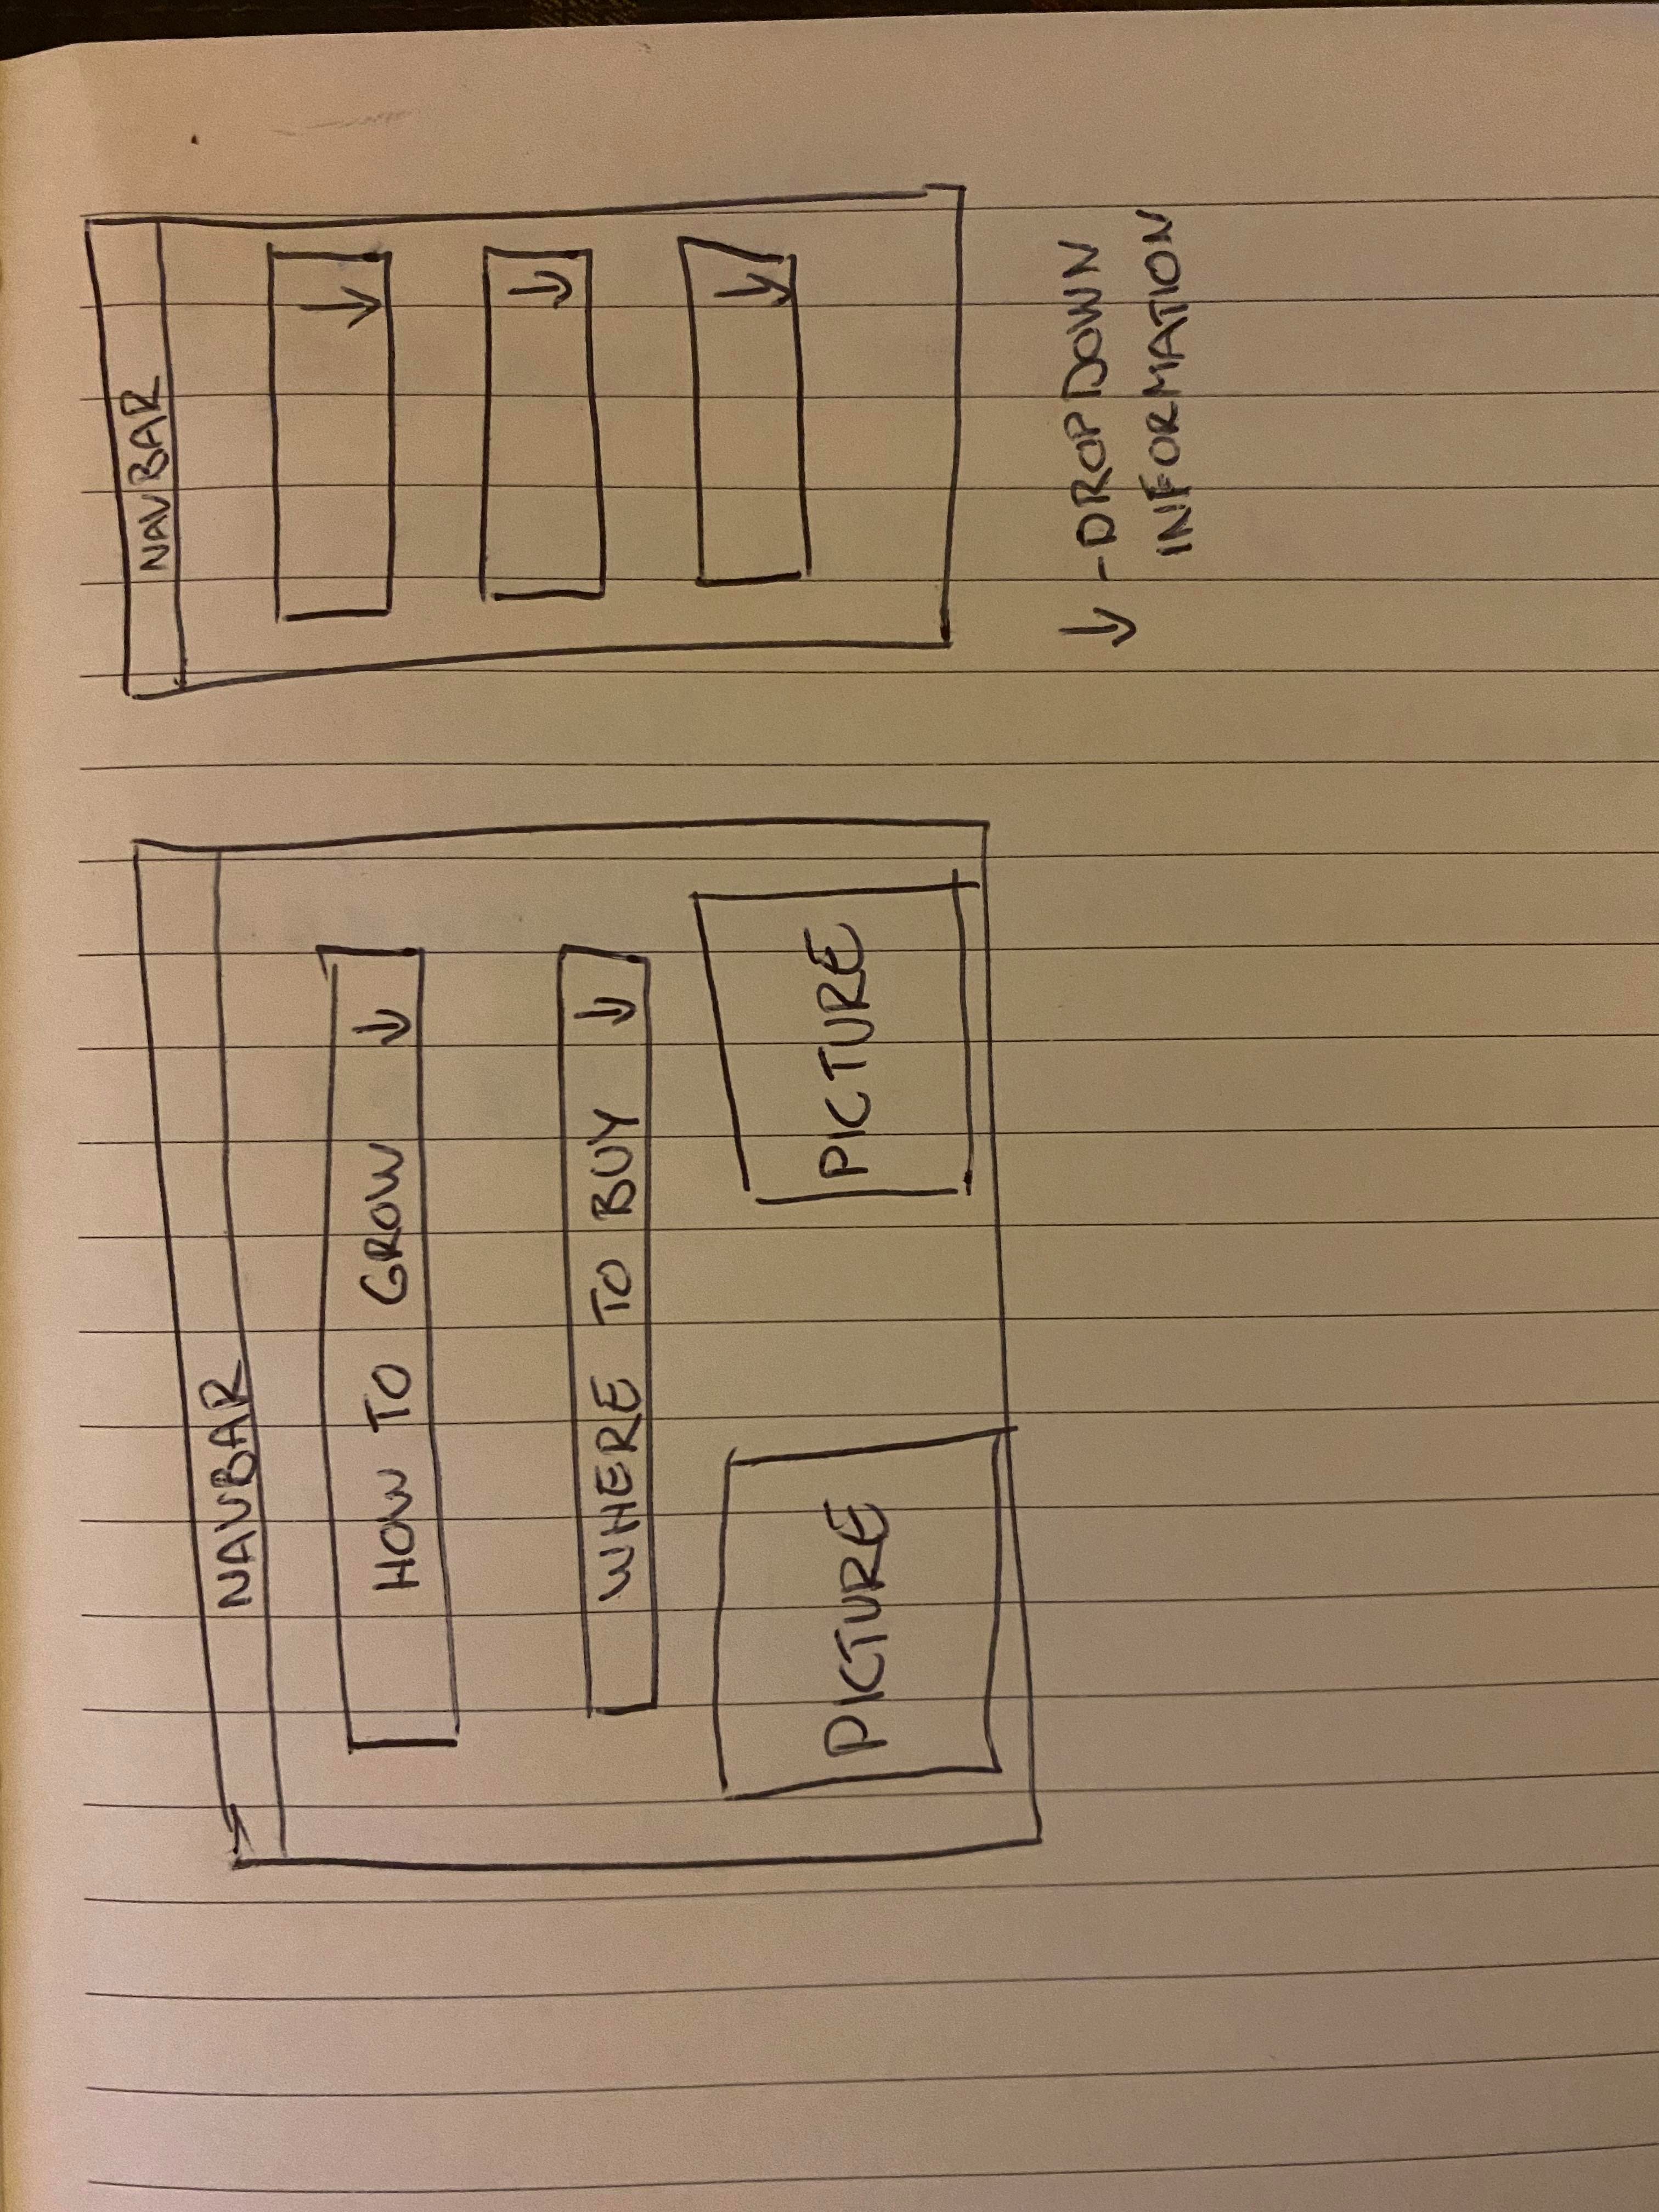 NAVBAR
HOW TO GROW ↓
WHERE TO BUY ↓
PICTURE
PICTURE
NAVBAR
↓
↓
↓
↓ - DROPDOWN
INFORMATION